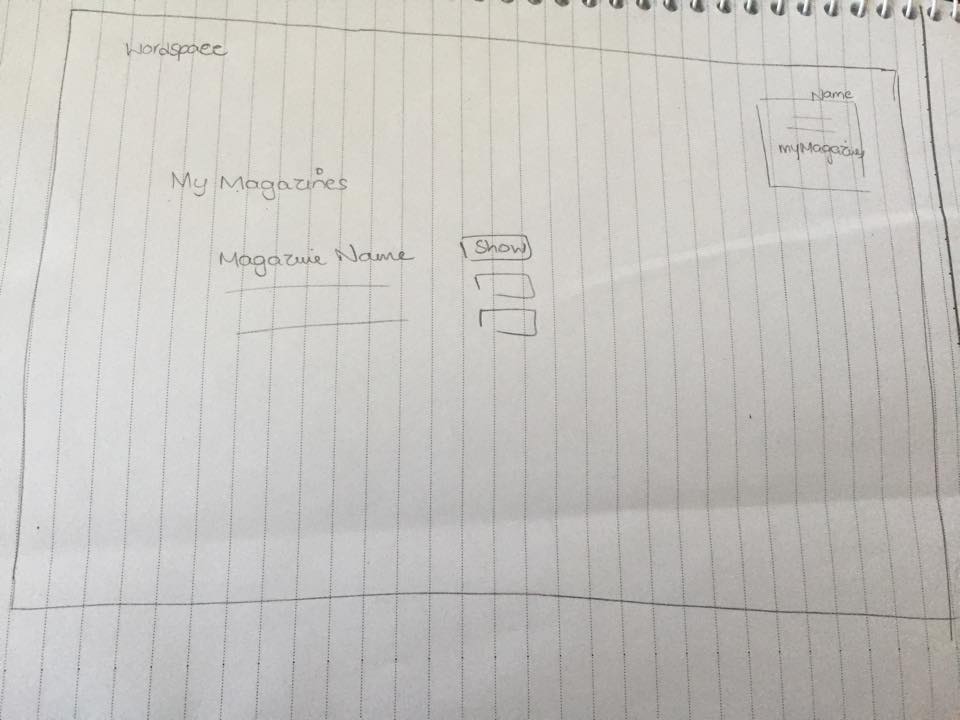 Wordspace
Name
myMagazines
My Magazines
Magazine Name
Show